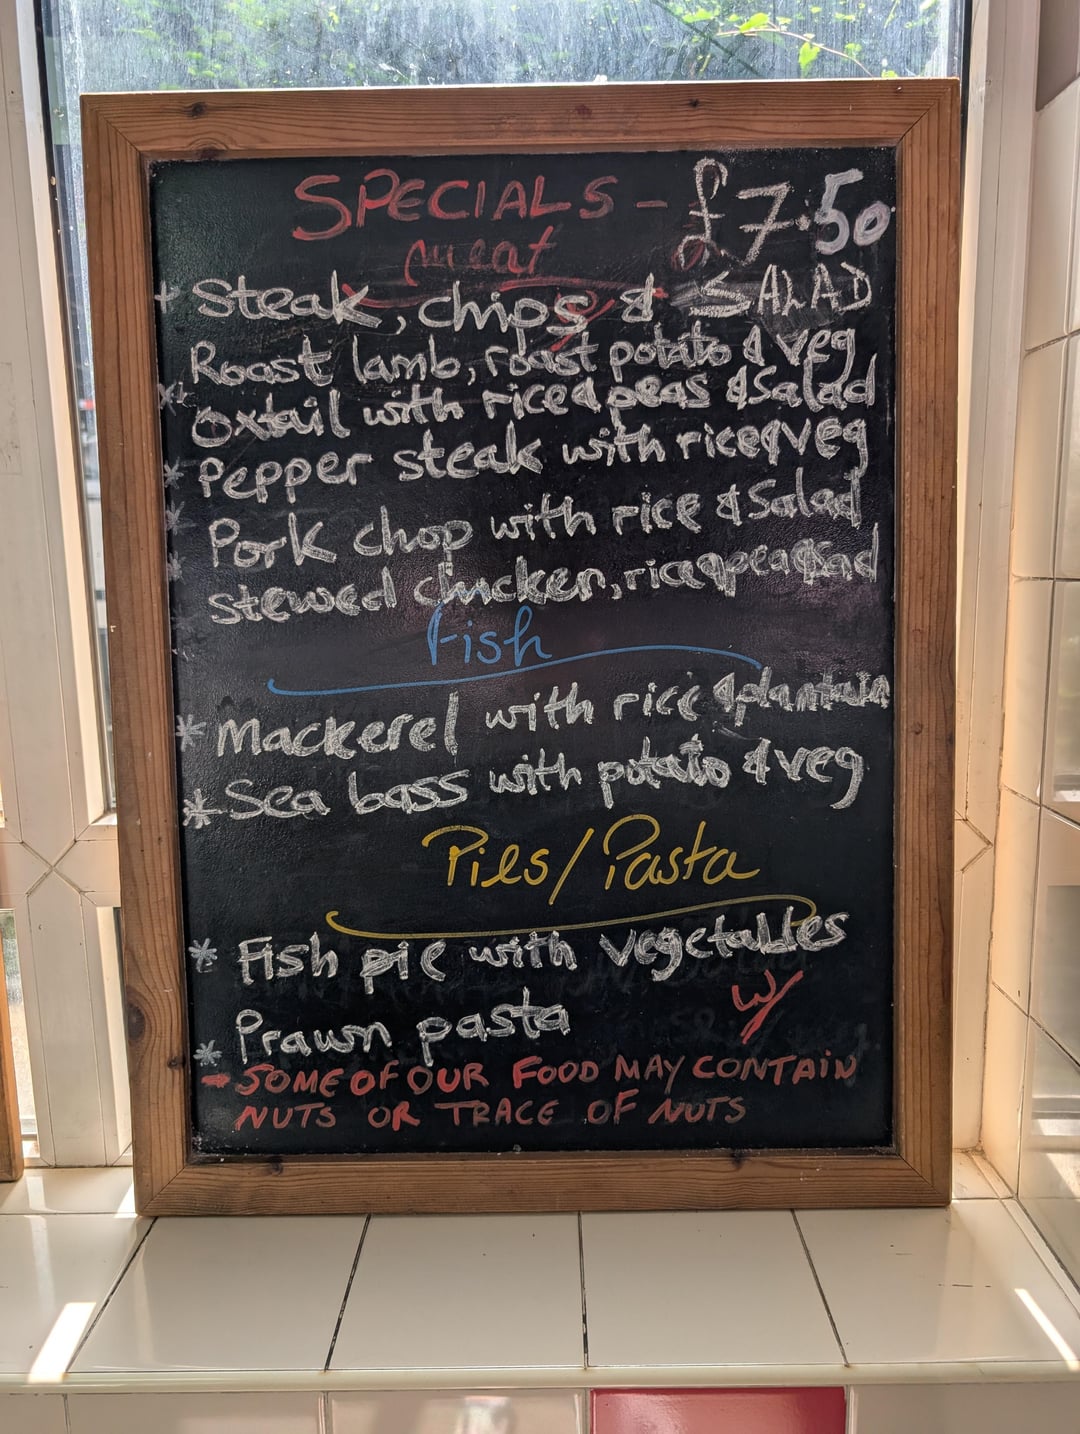 SPECIALS - £7.50
meat
* Steak, chips & SALAD
Roast lamb, roast potato & veg
* Oxtail with rice & peas & Salad
* Pepper steak with rice & veg
* Pork chop with rice & Salad
* Stewed chicken, rice & pea & Salad
Fish
* Mackerel with rice & plantain
* Sea bass with potato & veg
Pies/Pasta
* Fish pie with vegetables
* Prawn pasta
- SOME OF OUR FOOD MAY CONTAIN
NUTS OR TRACE OF NUTS